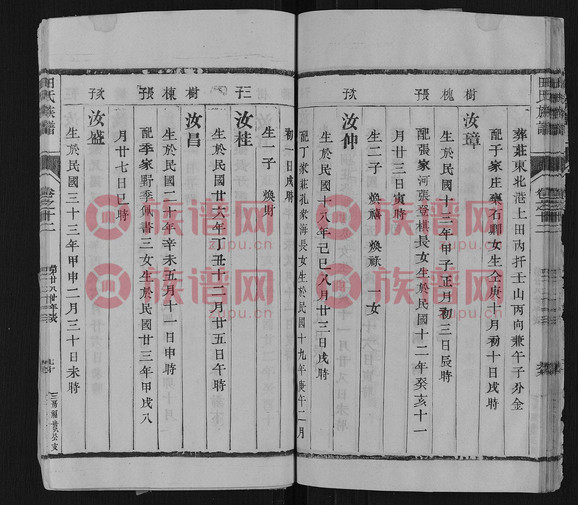 樹 槐 張 孜
葬莊東北港上田丙扦壬山丙向兼午子分金
配于家庄龐石卿女生仝庚十月初十日戌時
汝璋
生於民國十三年甲子正月初三日辰時
配張家河張登棋長女生於民國十二年癸亥十一
月廿三日寅時
生二子 煥禧 煥祿 一女
汝仲
生於民國十八年己巳八月廿三日戌時
配丁家莊孔來海長女生於民國十九年庚午二月
初一日戌時
生一子 煥財
子三 樹 棟 張 孜
汝桂
生於民國廿六年丁丑十二月廿五日午時
汝昌
生於民國二十年辛未五月十一日申時
配季家野季佩書三女生於民國廿三年甲戌八
月廿七日巳時
汝盛
生於民國三十三年甲申二月三十日未時
田氏族譜
卷之廿二
田氏族譜
卷之廿二
族谱网
zupu.cn
族谱网
zupu.cn
族谱网
zupu.cn
族谱网
zupu.cn